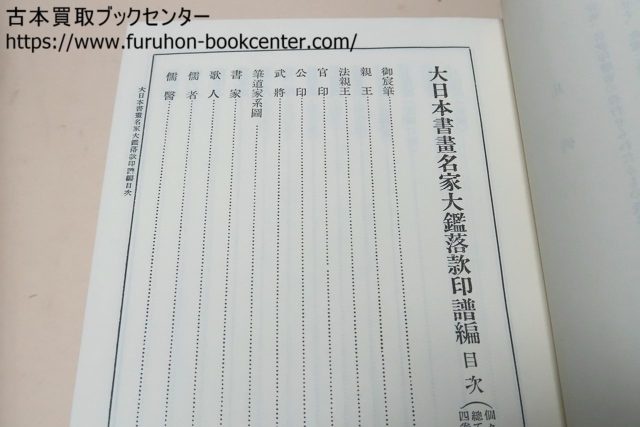 古本買取ブックセンター
https://www.furuhon-bookcenter.com/
大日本書畫名家大鑑落款印譜編 目次
御宸筆
親王
法親王
官印
公印
武將
筆道家系圖
書家
歌人
儒者
儒醫
大日本書畫名家大鑑落款印譜編目次